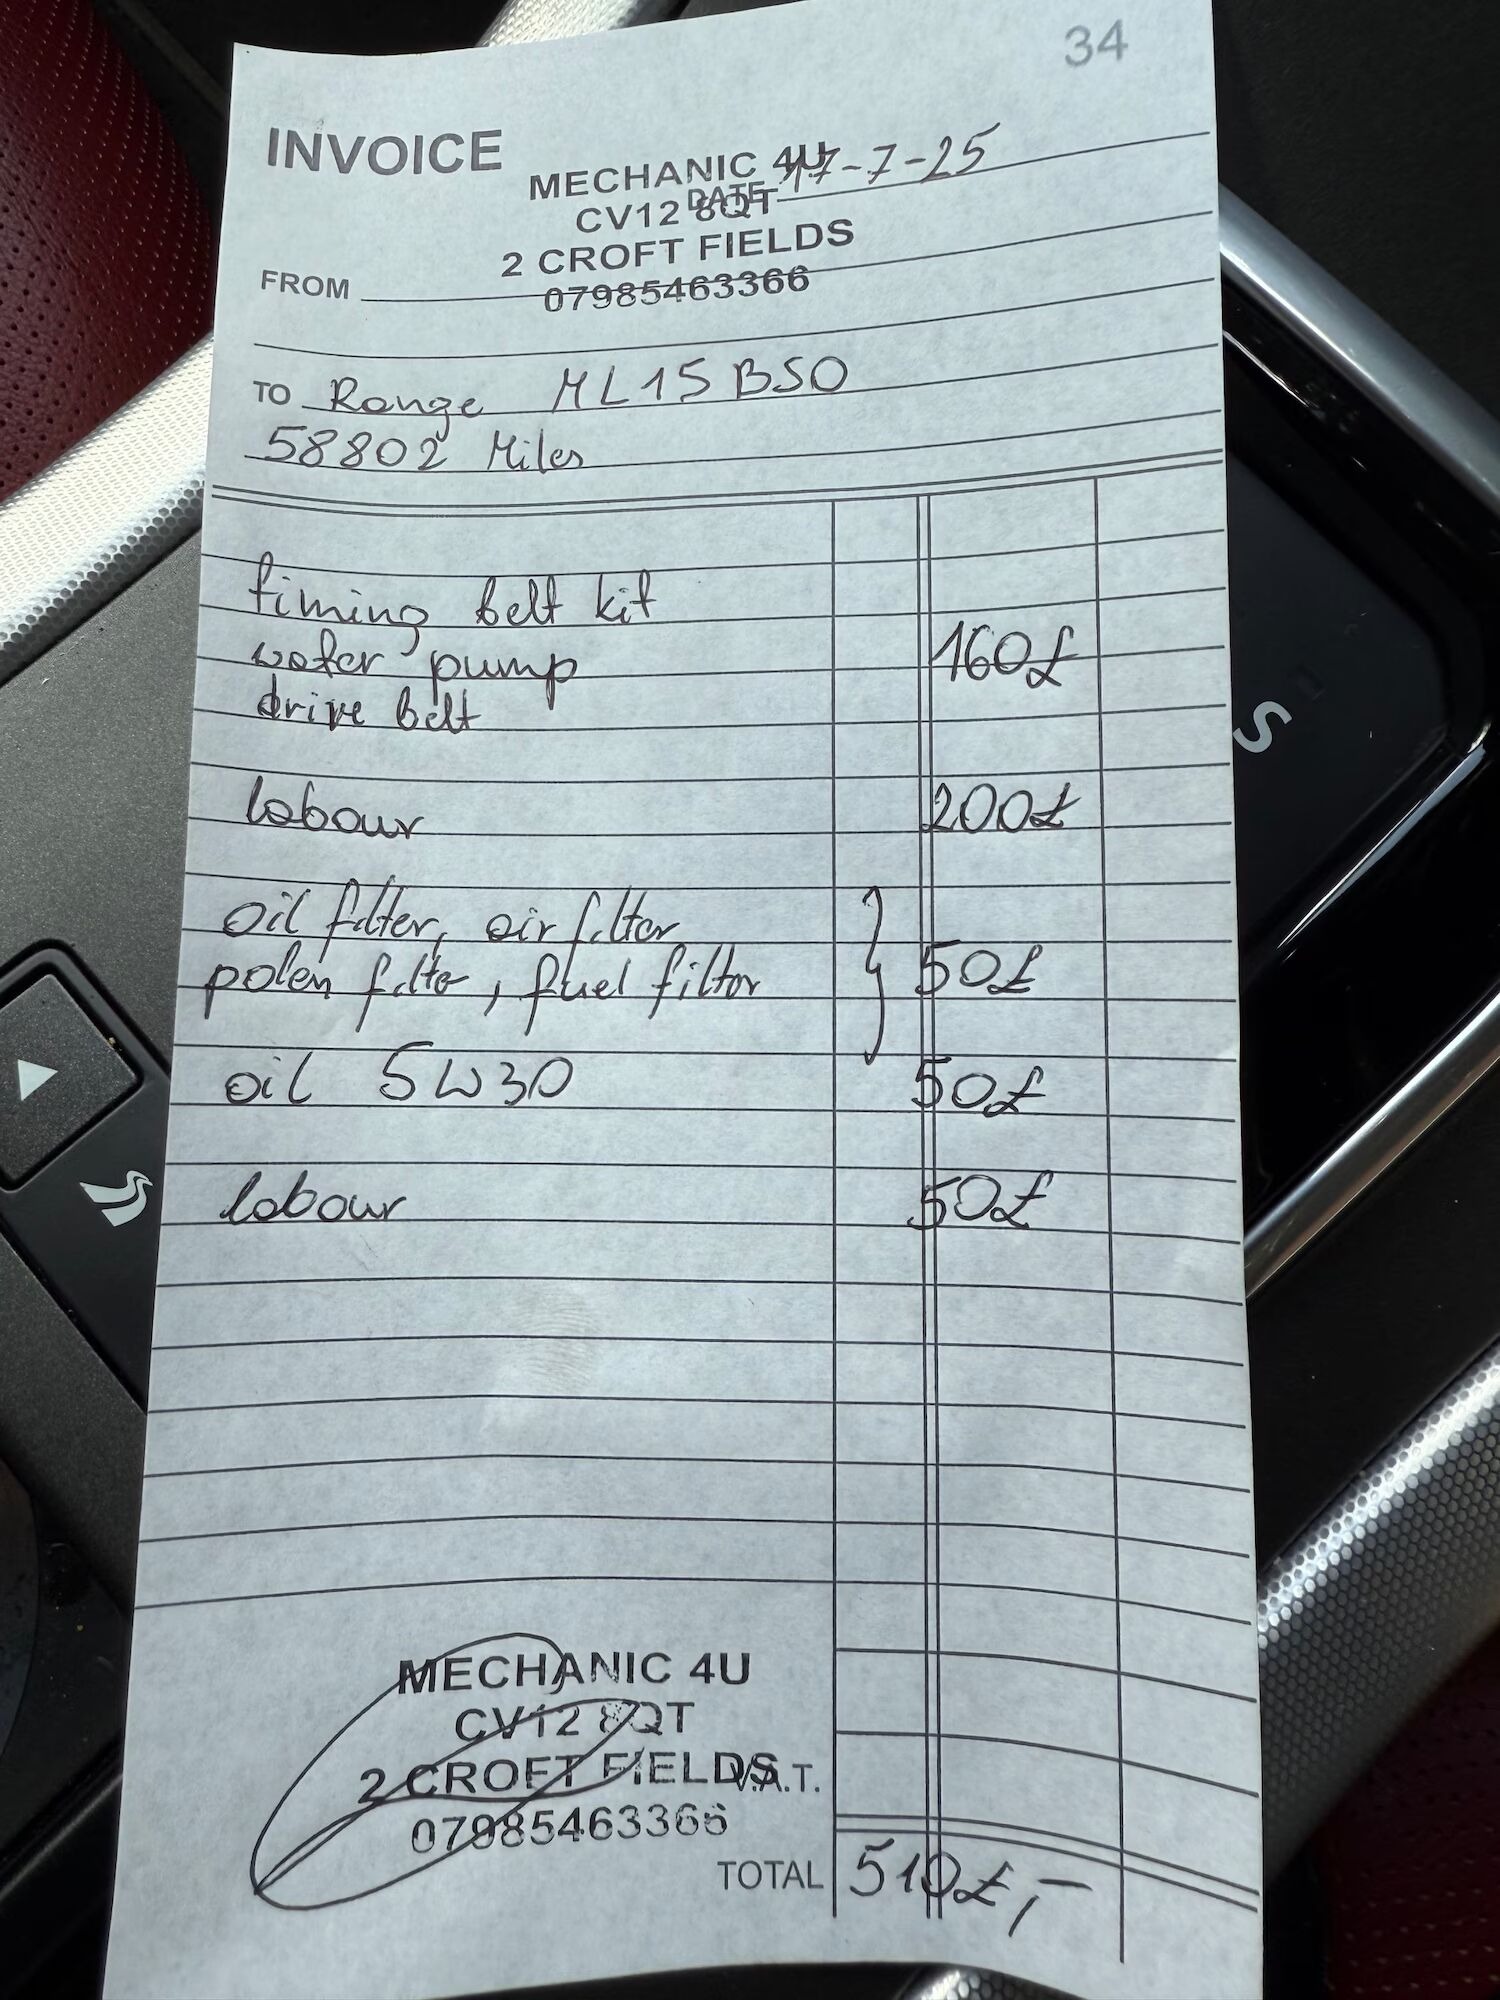 34
INVOICE
MECHANIC 4U
DATE 17-7-25
CV12 8QT
2 CROFT FIELDS
FROM
07985463366
TO Range ML15 BSO
58802 Miles
timing belt kit
water pump 160£
drive belt
labour 200£
oil filter, air filter
polen filter, fuel filtor 50£
oil 5W30 50£
labour 50£
MECHANIC 4U
CV12 8QT
2 CROFT FIELDS
V.A.T.
07985463366
TOTAL 510£,-
S